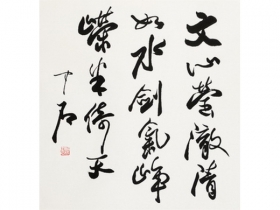 文心莹澈清
如水剑气峥
嵘半倚天
中石